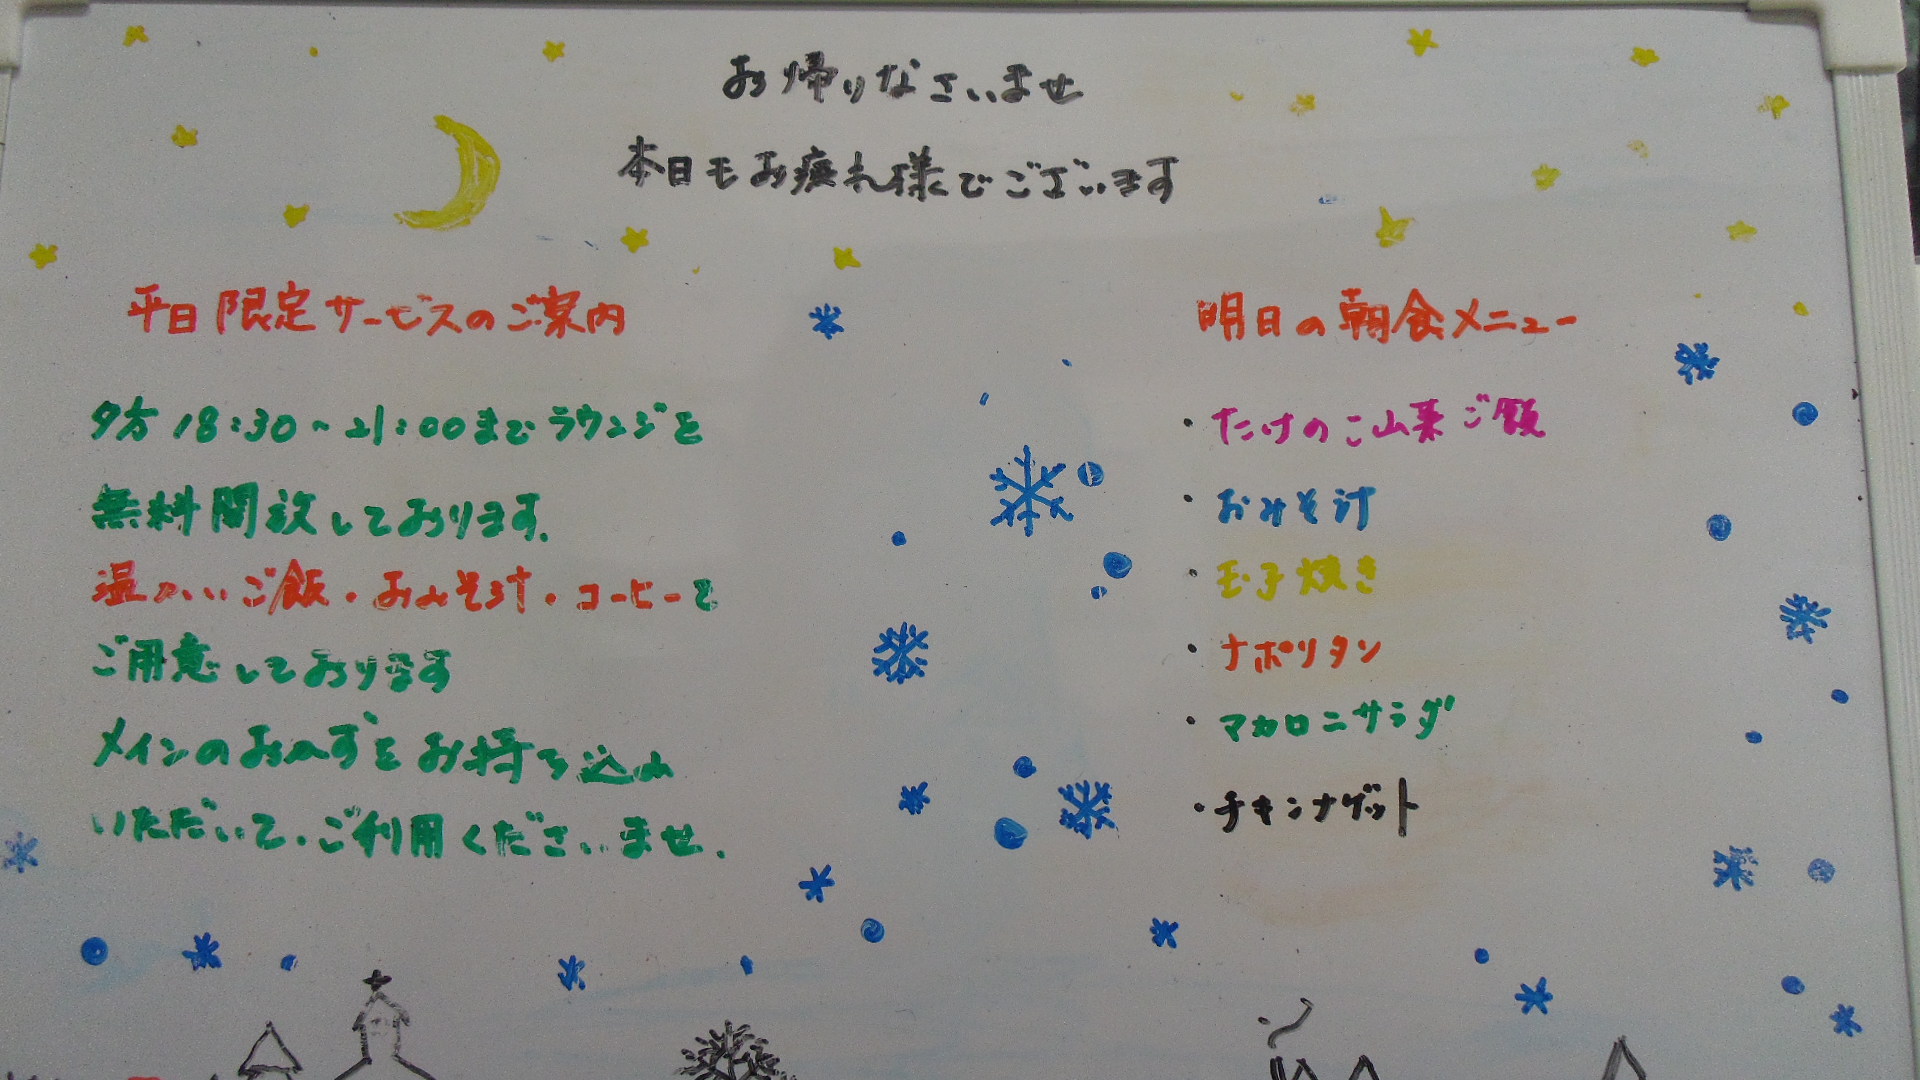 お帰りなさいませ
本日もお疲れ様でございます
平日限定サービスのご案内
夕方18:30~21:00までラウンジを
無料開放しております。
温かいご飯・おみそ汁・コーヒーを
ご用意しております
メインのおかずをお持ち込み
いただいて、ご利用くださいませ。
明日の朝食メニュー
・たけのこ山菜ご飯
・おみそ汁
・玉子焼き
・ナポリタン
・マカロニサラダ
・チキンナゲット